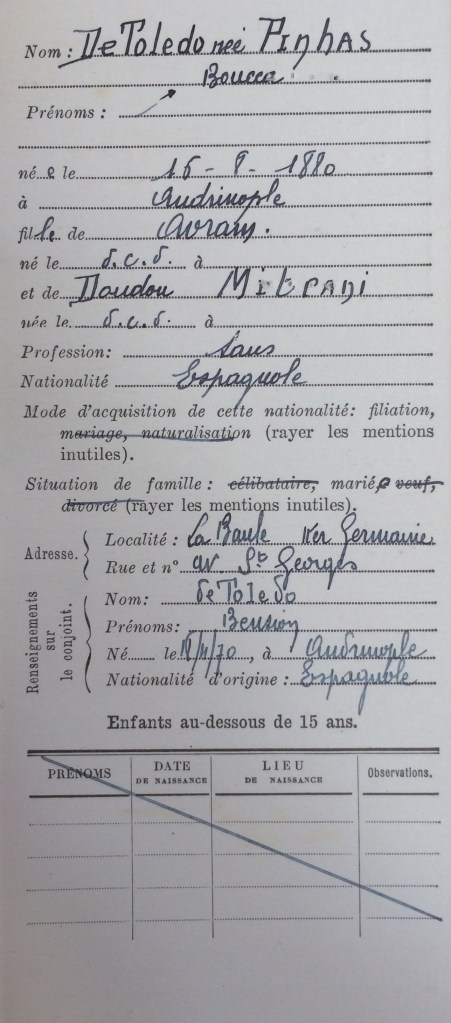 Nom : De Toledo née Pinhas
Boucca
Prénoms :
née le 15 - 8 - 1880
à Andrinople
fille de Avram.
né le d.c.d. à
et de Doudou Mitrani
née le d.c.d. à
Profession: Sans
Nationalité Espagnole
Mode d'acquisition de cette nationalité: filiation,
mariage, naturalisation (rayer les mentions
inutiles).
Situation de famille : célibataire, mariée veuf,
divorcé (rayer les mentions inutiles).
Adresse.
Localité : La Baule Ker Germaine
Rue et n° av St Georges
Renseignements
sur
le conjoint.
Nom: de Toledo
Prénoms: Bension
Né le /70, à Andrinople
Nationalité d'origine : Espagnole
Enfants au-dessous de 15 ans.
PRÉNOMS DATE DE NAISSANCE LIEU DE NAISSANCE Observations.